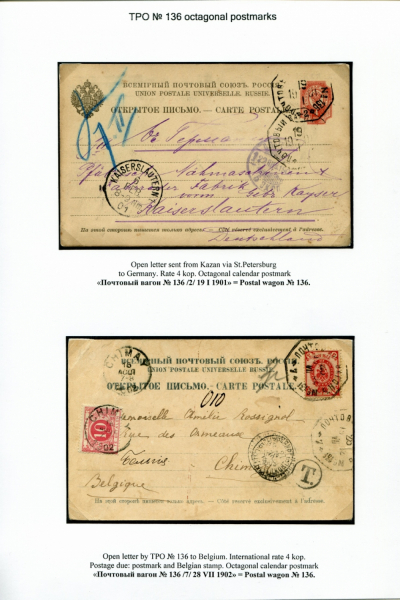 TPO № 136 octagonal postmarks
ВСЕМІРНЫЙ ПОЧТОВЫЙ СОЮЗЪ. РОССІЯ
UNION POSTALE UNIVERSELLE. RUSSIE.
ОТКРЫТОЕ ПИСЬМО. — CARTE POSTALE
Въ Германію
Pfälzische Nähmaschinen &
Fahrräder Fabrik
vorm. Gebr. Kayser
Kaiserslautern
KAISERSLAUTERN
На этой сторонѣ пишется только адресъ. — Côté réservé exclusivement à l'adresse.
Deutschland
Open letter sent from Kazan via St.Petersburg
to Germany. Rate 4 kop. Octagonal calendar postmark
«Почтовый вагон № 136 /2/ 19 I 1901» = Postal wagon № 136.
CHIMAY
ВСЕМІРНЫЙ ПОЧТОВЫЙ СОЮЗЪ. РОССІЯ
UNION POSTALE UNIVERSELLE. RUSSIE.
ОТКРЫТОЕ ПИСЬМО. — CARTE POSTALE
010
CHIMAY
10
Mademoiselle Amélie Rossignol
rue des Ormeaux
Chimay
Belgique
T.
На этой сторонѣ пишется только адресъ. — Côté réservé exclusivement à l'adresse.
Open letter by TPO № 136 to Belgium. International rate 4 kop.
Postage due: postmark and Belgian stamp. Octagonal calendar postmark
«Почтовый вагон № 136 /7/ 28 VII 1902» = Postal wagon № 136.